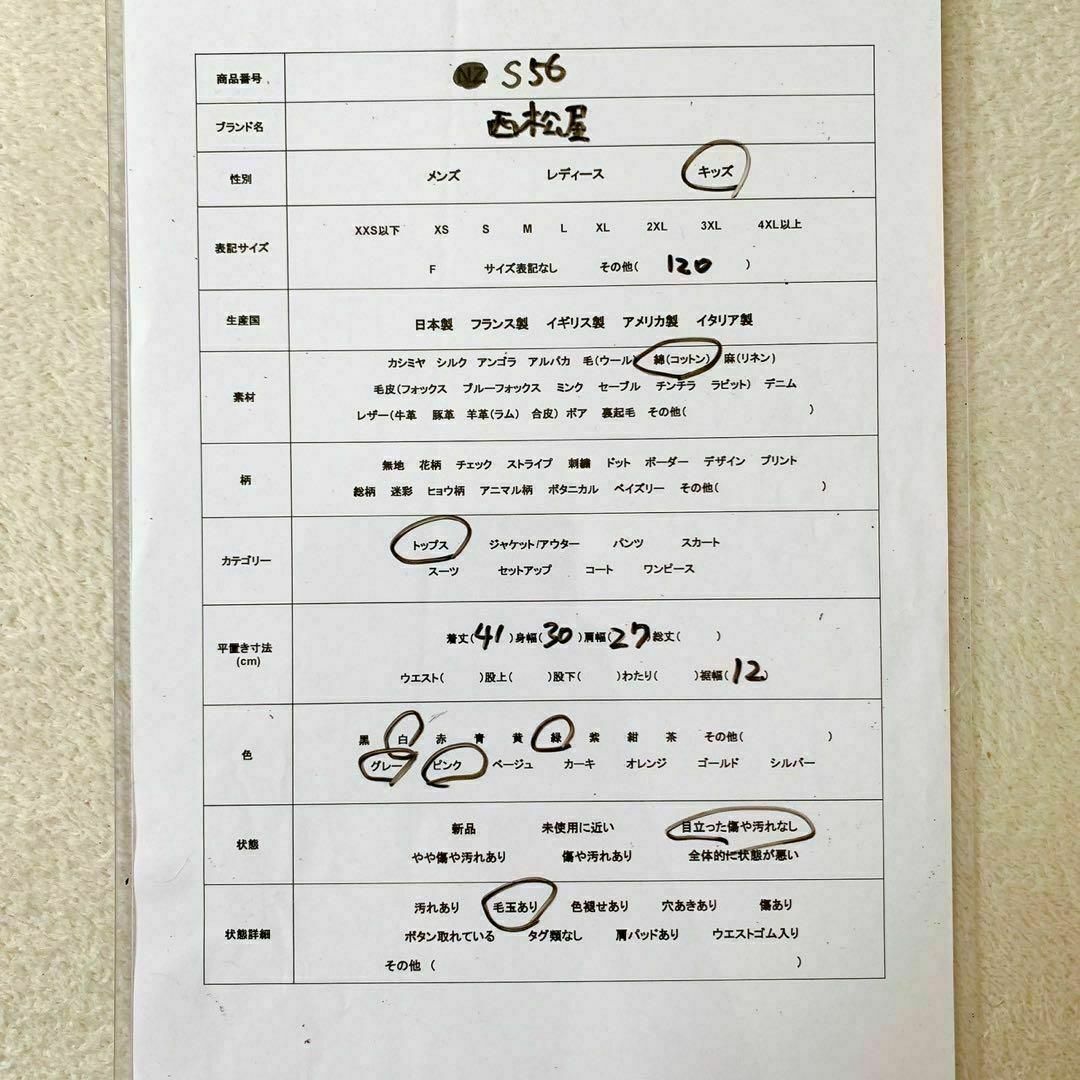 商品番号 NZ S56
ブランド名 西松屋
性別 メンズ レディース キッズ
表記サイズ XXS以下 XS S M L XL 2XL 3XL 4XL以上
F サイズ表記なし その他( 120 )
生産国 日本製 フランス製 イギリス製 アメリカ製 イタリア製
素材 カシミヤ シルク アンゴラ アルパカ 毛(ウール) 綿(コットン) 麻(リネン)
毛皮(フォックス ブルーフォックス ミンク セーブル チンチラ ラビット) デニム
レザー(牛革 豚革 羊革(ラム) 合皮) ボア 裏起毛 その他( )
柄 無地 花柄 チェック ストライプ 刺繍 ドット ボーダー デザイン プリント
総柄 迷彩 ヒョウ柄 アニマル柄 ボタニカル ペイズリー その他( )
カテゴリー トップス ジャケット/アウター パンツ スカート
スーツ セットアップ コート ワンピース
平置き寸法 (cm) 着丈(41)身幅(30)肩幅(27)総丈( )
ウエスト( )股上( )股下( )わたり( )裾幅(12)
色 黒 白 赤 青 黄 緑 紫 紺 茶 その他( )
グレー ピンク ベージュ カーキ オレンジ ゴールド シルバー
状態 新品 未使用に近い 目立った傷や汚れなし
やや傷や汚れあり 傷や汚れあり 全体的に状態が悪い
状態詳細 汚れあり 毛玉あり 色褪せあり 穴あきあり 傷あり
ボタン取れている タグ類なし 肩パッドあり ウエストゴム入り
その他 ( )